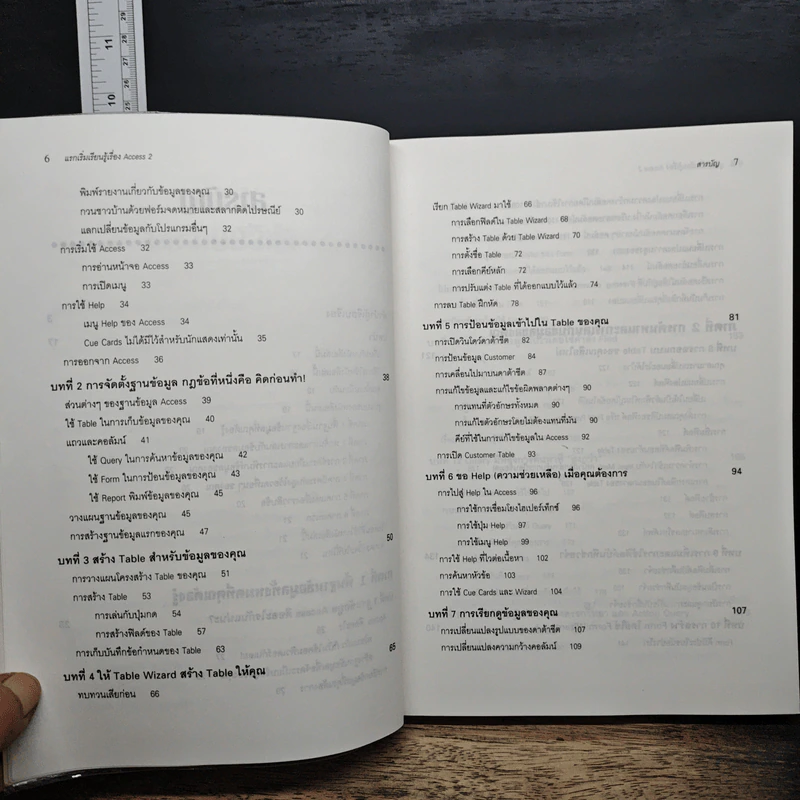 11
29
28
27
26
10
25
6 แรกเริ่มเรียนรู้เรื่อง Access 2
พิมพ์รายงานเกี่ยวกับข้อมูลของคุณ 30
กวนชาวบ้านด้วยฟอร์มจดหมายและสลากติดไปรษณีย์ 30
แลกเปลี่ยนข้อมูลกับโปรแกรมอื่นๆ 32
การเริ่มใช้ Access 32
การอ่านหน้าจอ Access 33
การเปิดเมนู 33
การใช้ Help 34
เมนู Help ของ Access 34
Cue Cards ไม่ได้มีไว้สำหรับนักแสดงเท่านั้น 35
การออกจาก Access 36
บทที่ 2 การจัดตั้งฐานข้อมูล กฎข้อที่หนึ่งคือ คิดก่อนทำ! 38
ส่วนต่างๆ ของฐานข้อมูล Access 39
ใช้ Table ในการเก็บข้อมูลของคุณ 40
แถวและคอลัมน์ 41
ใช้ Query ในการค้นหาข้อมูลของคุณ 42
ใช้ Form ในการป้อนข้อมูลของคุณ 43
ใช้ Report พิมพ์ข้อมูลของคุณ 45
วางแผนฐานข้อมูลของคุณ 45
การสร้างฐานข้อมูลแรกของคุณ 47
บทที่ 3 สร้าง Table สำหรับข้อมูลของคุณ 50
การวางแผนโครงสร้าง Table ของคุณ 51
การสร้าง Table 53
การเล่นกับปุ่มกด 54
การสร้างฟิลด์ของ Table 57
การเก็บบันทึกข้อกำหนดของ Table 63
บทที่ 4 ให้ Table Wizard สร้าง Table ให้คุณ 65
ทบทวนเสียก่อน 66
สารบัญ 7
เรียก Table Wizard มาใช้ 66
การเลือกฟิลด์ใน Table Wizard 68
การสร้าง Table ด้วย Table Wizard 70
การตั้งชื่อ Table 72
การเลือกคีย์หลัก 72
การปรับแต่ง Table ที่ได้ออกแบบไว้แล้ว 74
การลบ Table ฝึกหัด 78
บทที่ 5 การป้อนข้อมูลเข้าไปใน Table ของคุณ 81
การเปิดวินโดว์ดาต้าชีต 82
การป้อนข้อมูล Customer 84
การเคลื่อนไปมาบนดาต้าชีต 87
การแก้ไขข้อมูลและแก้ไขข้อผิดพลาดต่างๆ 90
การแทนที่ตัวอักษรทั้งหมด 90
การแก้ไขตัวอักษรโดยไม่ต้องแทนที่มัน 90
คีย์ที่ใช้ในการแก้ไขข้อมูลใน Access 92
การเปิด Customer Table 93
บทที่ 6 ขอ Help (ความช่วยเหลือ) เมื่อคุณต้องการ 94
การไปสู่ Help ใน Access 96
การใช้การเชื่อมโยงไฮเปอร์เท็กซ์ 96
การใช้ปุ่ม Help 97
การใช้เมนู Help 99
การใช้ Help ที่ไวต่อเนื้อหา 102
การค้นหาหัวข้อ 103
การใช้ Cue Cards และ Wizard 104
บทที่ 7 การเรียกดูข้อมูลของคุณ 107
การเปลี่ยนแปลงรูปแบบของดาต้าชีต 107
การเปลี่ยนแปลงความกว้างคอลัมน์ 109